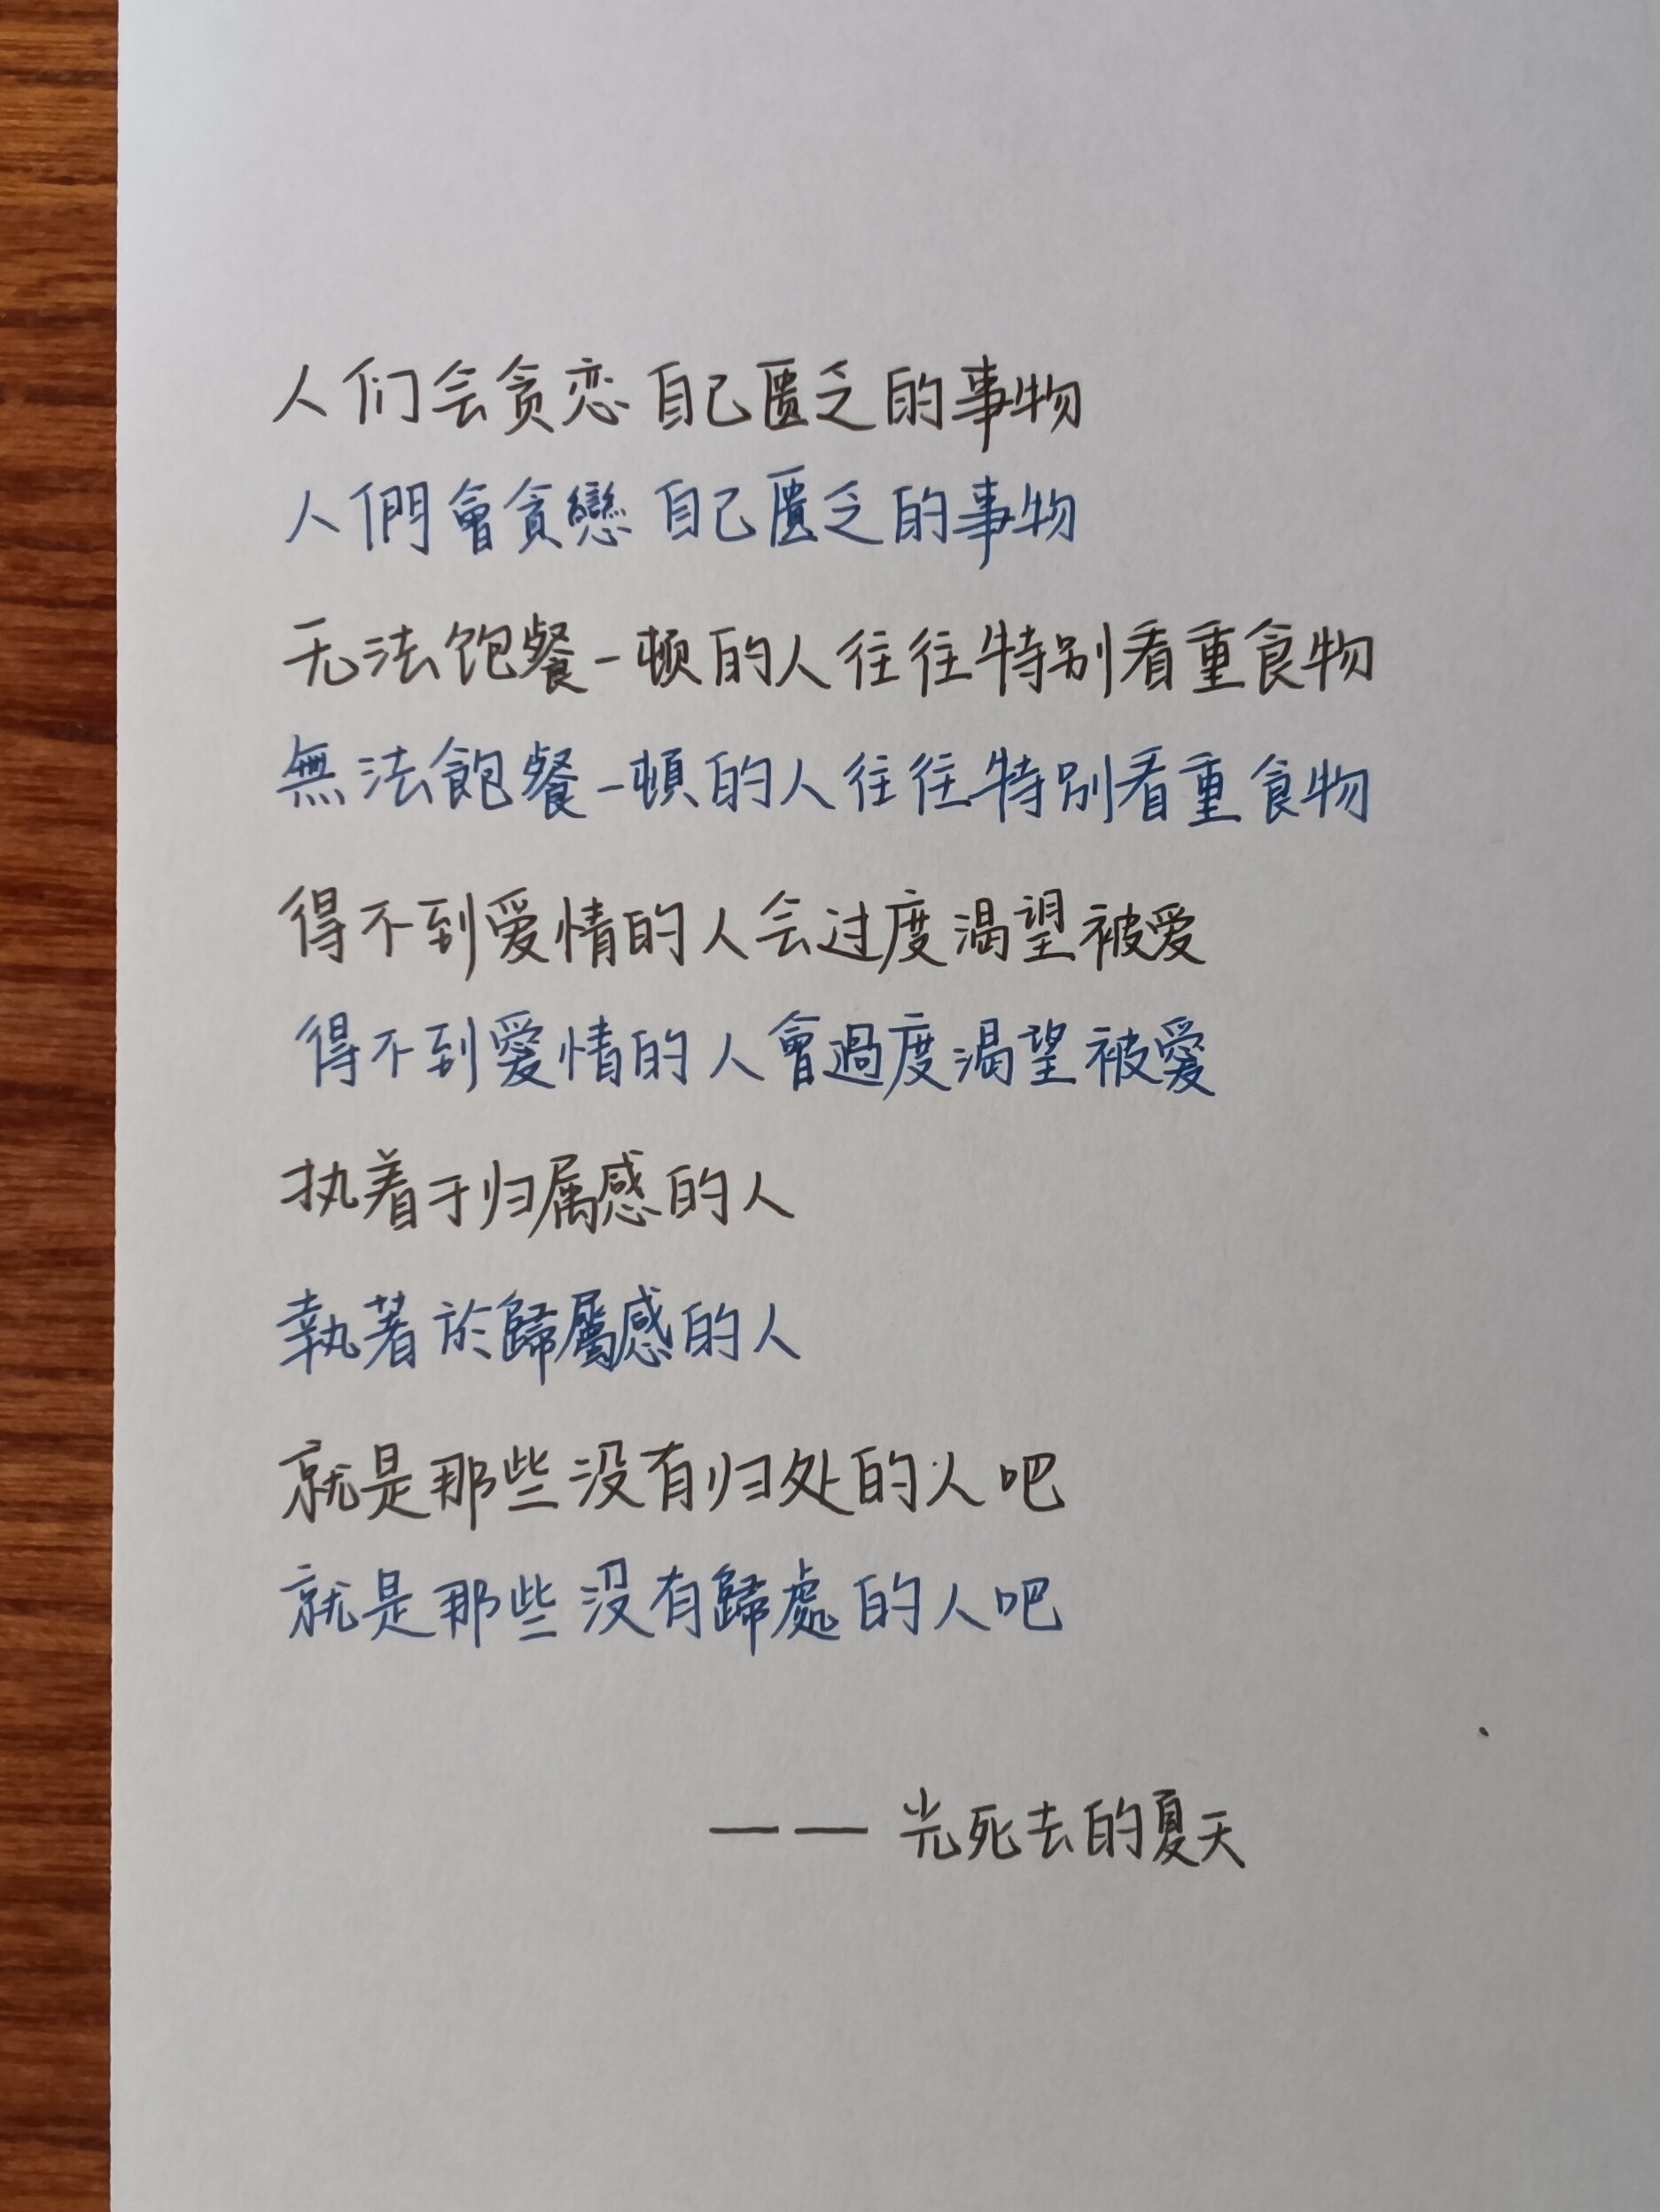 人们会贪恋自己匮乏的事物
人們會貪戀自己匱乏的事物
无法饱餐一顿的人往往特别看重食物
無法飽餐一頓的人往往特別看重食物
得不到爱情的人会过度渴望被爱
得不到愛情的人會過度渴望被愛
执着于归属感的人
執著於歸屬感的人
就是那些没有归处的人吧
就是那些沒有歸處的人吧
——光死去的夏天